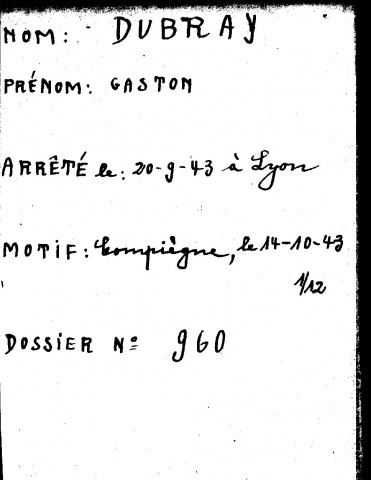 NOM: DUBRAY
PRÉNOM: GASTON
ARRÊTÉ le: 20-9-43 à Lyon
MOTIF: Compiègne, le 14-10-43
1/12
DOSSIER Nº 960